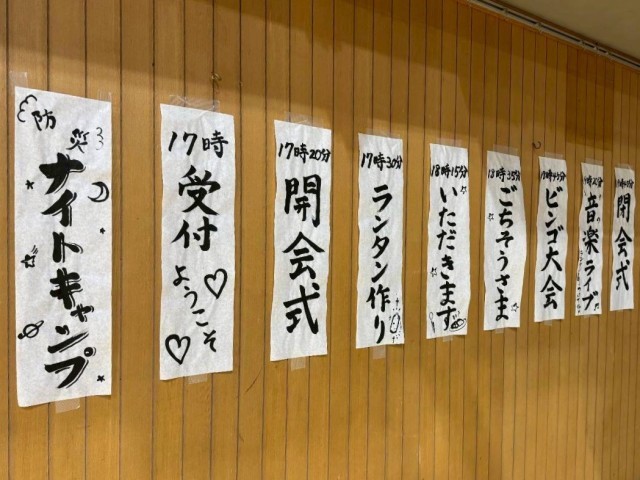 防災
ナイトキャンプ
17時
受付
ようこそ
17時20分
開会式
17時30分
ランタン作り
18時15分
いただきます
18時35分
ごちそうさま
ビンゴ大会
音楽ライブ
閉会式